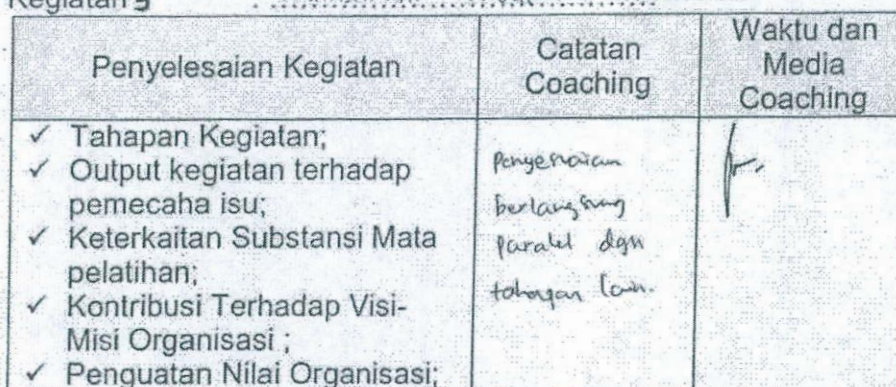 Kegiatan 5 : ................................................
Penyelesaian Kegiatan
Catatan
Coaching
Waktu dan
Media
Coaching
✓ Tahapan Kegiatan;
✓ Output kegiatan terhadap
pemecaha isu;
✓ Keterkaitan Substansi Mata
pelatihan;
✓ Kontribusi Terhadap Visi-
Misi Organisasi ;
✓ Penguatan Nilai Organisasi;
berlangsung
paralel dgn
tahapan lain.